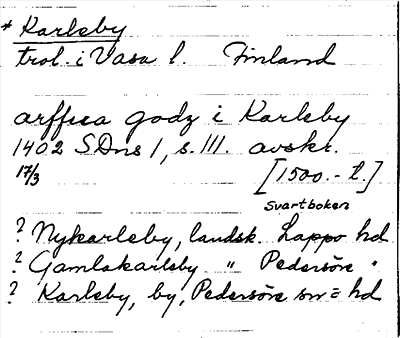 * Karleby
trol. i Vasa l. Finland
arffua godz i Karleby
1402 SDns 1, s. 111. avskr.
17/3 [1500.-t.]
Svartboken
? Nykarleby, landsk. Lappo hd
? Gamlakarleby " Pedersöre "
? Karleby, by, Pedersöre sn = hd